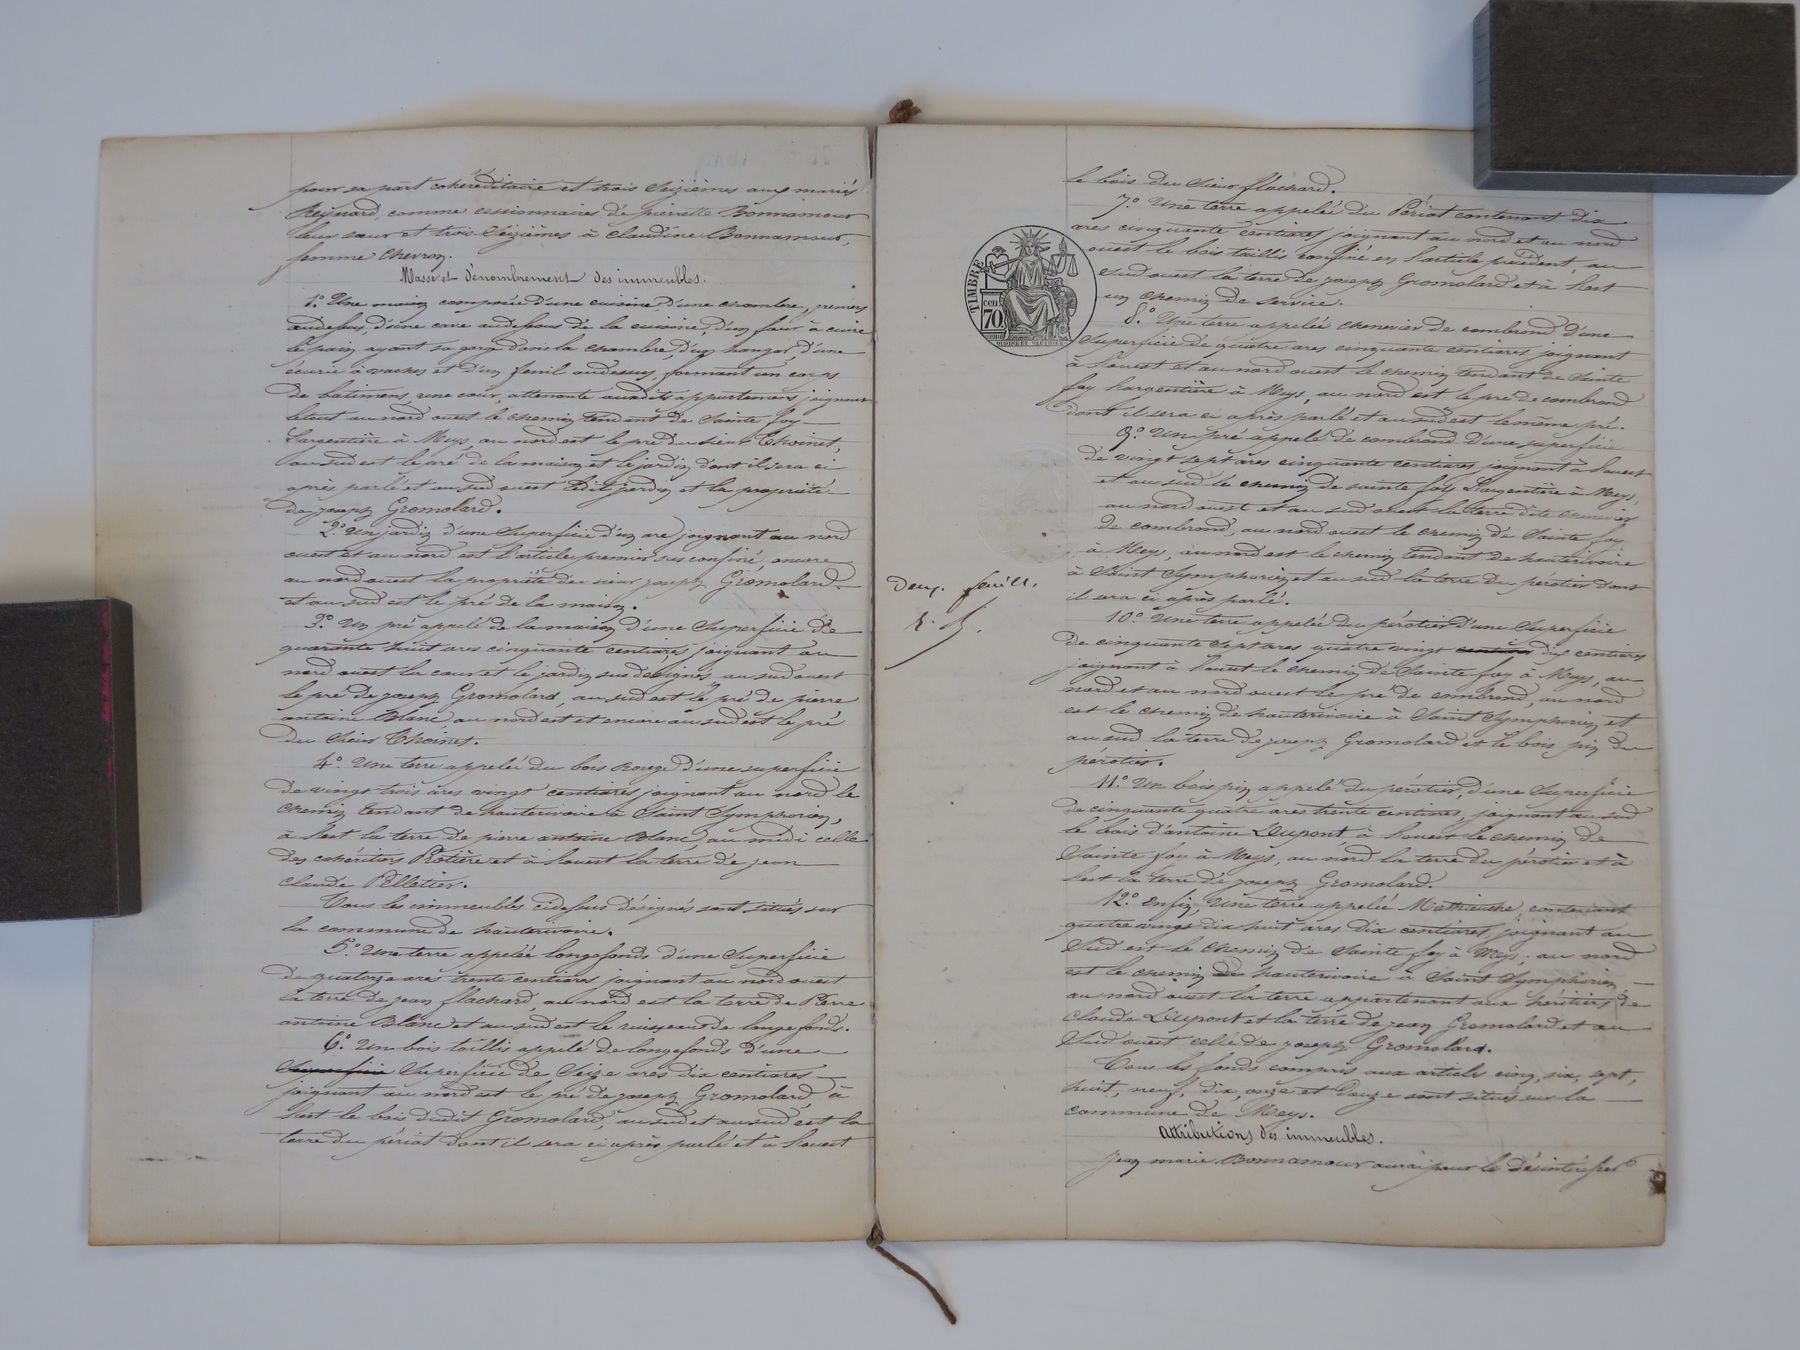 pour sa part cohéréditaire et trois Seizièmes aux mariés
Reynard, comme cessionnaires de pierrette Bonnamour
leur sœur et trois Seizièmes à claudine Bonnamour,
femme Chevron.
Masse et dénombrement des immeubles.
1.° Une maison composée d'une cuisine, d'une chambre, greniers
audessus, d'une cave audessous de la cuisine, d'un four à cuire
le pain ayant sa gorge dans la chambre d'un hangar, d'une
écurie à vaches et d'un fenil audessus, formant un corps
de batimens, une cour, attenante auxdits appartemens joignant
letout au nord ouest le chemin tendant de Sainte foy
Largentière à Meys, au nord est le pré du sieur Thoinet,
au sud est le pré de la maison et le jardin dont il sera ci
après parlé et au sud ouest ledit jardin et la propriété
de joseph Gromolard.
2.° Un jardin d'une Superficie d'un are joignant au nord
ouest et au nord est l'article premier sus confiné, encore
au nord ouest la propriété du sieur joseph Gromolard
et au sud est le pré de la maison.
3.° Un pré appelé de la maison d'une Superficie de
quarante huit ares cinquante centiares, joignant au
nord ouest la cour et le jardin sus désignés au sud ouest
le pré de joseph Gromolard, au sud est le pré de pierre
antoine Blanc au nord est et encore au sud est le pré
du Sieur Thoinet.
4.° Une terre appelée du bois Rouge d'une superficie
de vingt trois ares vingt centiares joignant au nord le
chemin tendant de hauterivoire à Saint Symphorien,
à l'est la terre de pierre antoine Blanc, au midi celle
des cohéritiers Protière et à l'ouest la terre de jean
claude Pelletier.
Tous les immeubles cidessus désignés sont situés sur
la commune de hauterivoire.
5.° Une terre appelée longefonds d'une Superficie
de quatorze ares trente centiares joignant au nord ouest
la terre de jean flachard, au nord est la terre de Pierre
antoine Blanc et au sud est le ruisseau de longefonds.
6.° Un bois taillis appelé de longefonds d'une
Superficie Superficie de Seize ares dix centiares
joignant au nord est le pré de joseph Gromolard, à
l'est le bois dudit Gromolard, au sud et au sud est la
terre du périat dont il sera ci après parlé et à l'ouest
le bois du Sieur flachard.
7.° Une terre appelée du Périat contenant dix
ares cinquante centiares joignant au nord et au nord
ouest le bois taillis confiné en l'article précédent, au
sud ouest la terre de joseph Gromolard et à l'est
un chemin de service.
8.° Une terre appelée chenevier de combrond d'une
Superficie de quatre ares cinquante centiares joignant
à l'ouest et au nord ouest le chemin tendant de Sainte
foy l'argentière à Meys, au nord est le pré de combrond
dont il sera ci après parlé et au sud est le même pré.
9.° Un pré appelé de combrond d'une superficie
de vingt sept ares cinquante centiares joignant à l'ouest
et au sud le chemin de sainte foy l'argentière à Meys,
au nord ouest et au sud ouest la terre dite chenevier
de combrond, au nord ouest le chemin de Sainte foy
à Meys, au nord est le chemin tendant de hauterivoire
à Saint Symphorien et au sud la terre du pérotier dont
il sera ci après parlé.
10.° Une terre appelée du pérotier d'une Superficie
de cinquante sept ares quatre vingt centiare dix centiares
joignant à l'ouest le chemin de Sainte foy à Meys, au
nord et au nord ouest le pré de combrond, au nord
est le chemin de hauterivoire à Saint Symphorien et
au sud la terre de joseph Gromolard et le bois pin du
pérotier.
11.° Un bois pin appelé du pérotier, d'une Superficie
de cinquante quatre ares trente centiares, joignant au sud
le bois d'antoine Dupont, à l'ouest le chemin de
Sainte foy à Meys, au nord la terre du pérotier et à
l'est la terre de joseph Gromolard.
12.° Enfin, Une terre appelée Mathieuche contenant
quatre vingt dix huit ares dix centiares, joignant au
Sud est le chemin de Sainte foy à Meys, au nord
est le chemin de hauterivoire à Saint Symphorien
au nord ouest la terre appartenant aux héritiers de
claude Dupont et la terre de jean Gromolard et au
Sud ouest celle de joseph Gromolard.
Tous les fonds compris aux articles cinq, six, sept,
huit, neuf, dix, onze et douze sont situés sur la
commune de Meys.
Attributions des immeubles.
Jean marie Bonnamour aura pour le désintéresser
TIMBRE
cen
70
Deux. feuill.